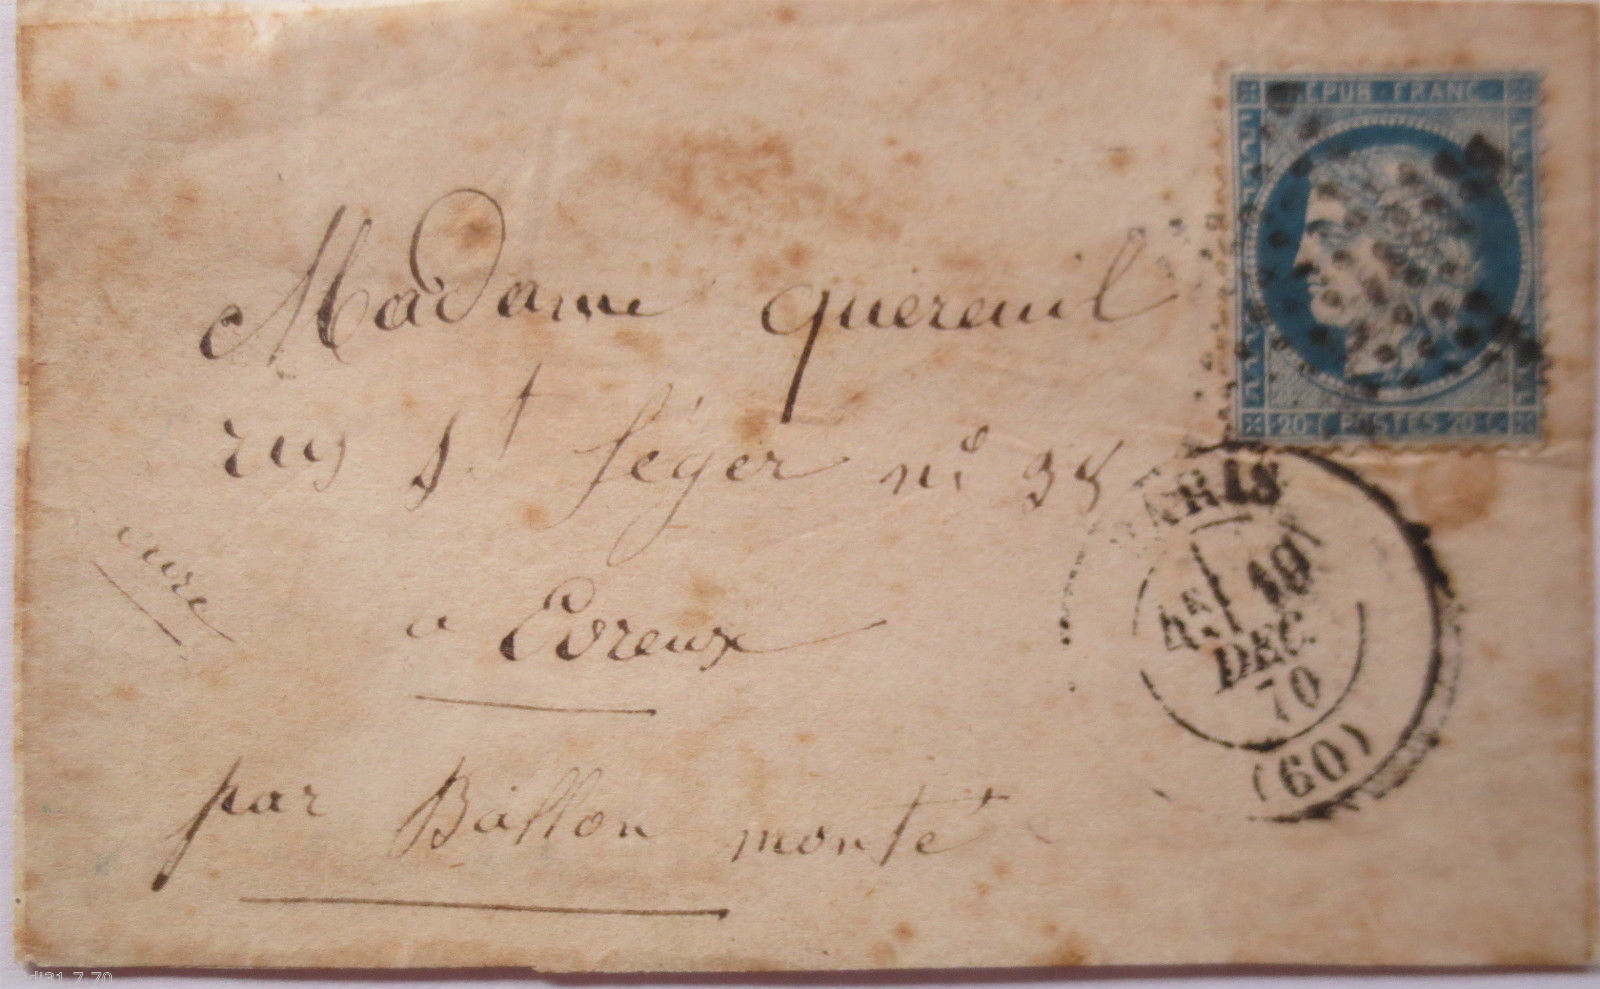 REPUB · FRANC ·
20 · C POSTES 20 · C
Madame quereuil
rue St Léger n° 38
eure
a Evreux
par Ballon monté
PARIS
4E 19
DEC
70
(60)